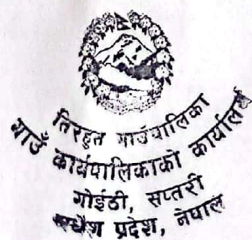 तिरहुत गाउँपालिका
गाउँ कार्यपालिकाको कार्यालय
गोईठी, सप्तरी
मधेश प्रदेश, नेपाल